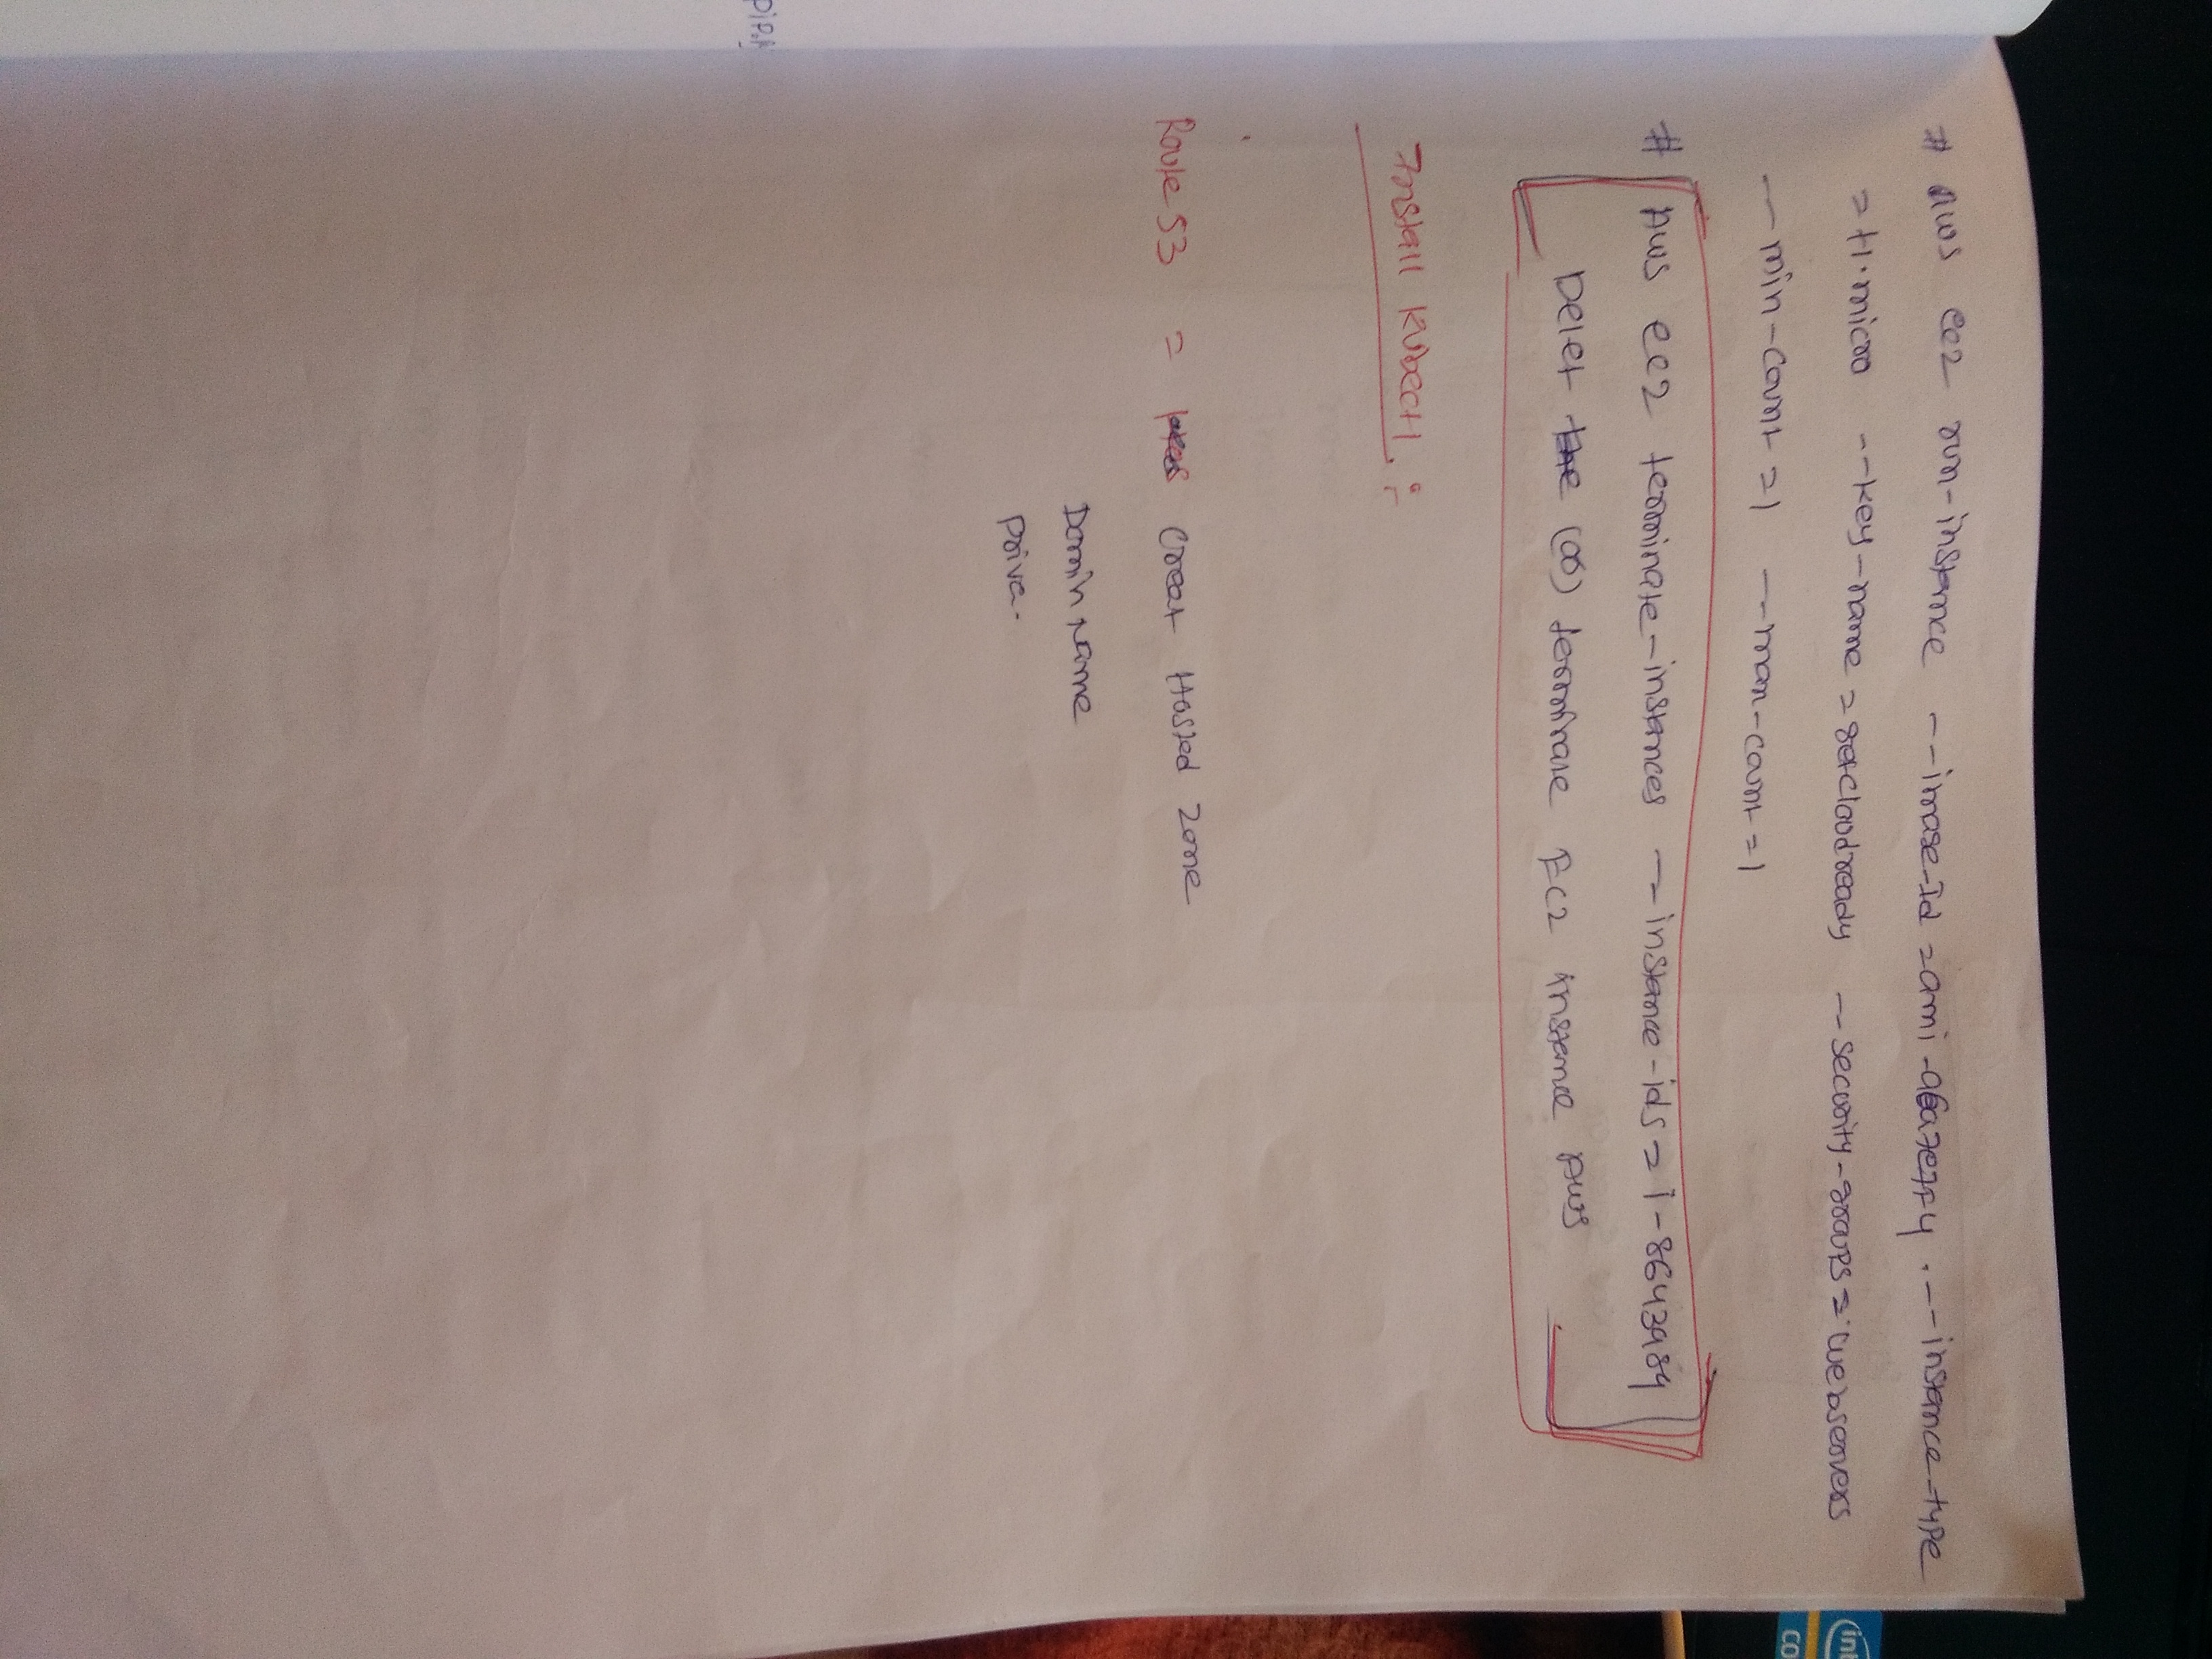 # aws ec2 run-instance --image-Id=ami-a6a7e7f4 . --instance-type
= t1.micro --key-name = getcloudready -- security-groups = webservers
-- min-count = 1 -- max-count = 1
# Aws ec2 terminate-instances -- instance-ids = i-8643989
Delet the (or) terminate EC2 instance AWS
Install Kubectl. :-
Route 53 = Creat Hosted Zone
Domin Name
Priva-
int
CO